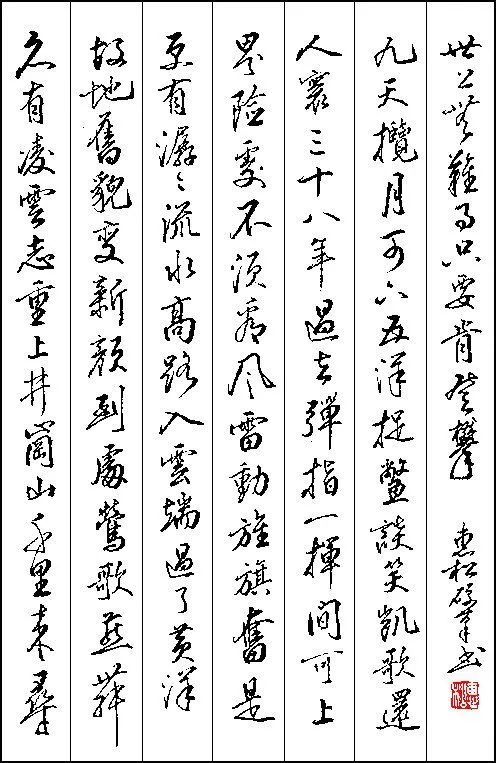 久有凌雲志重上井崗山千里来尋
故地舊貌变新顔到處鶯歌燕舞
更有潺々流水高路入雲端過了黄洋
界險處不須看風雷動旌旗奮是
人寰三十八年過去彈指一揮間可上
九天攬月可下五洋捉鱉談笑凱歌還
世上無難事只要肯登攀
惠松硬筆书